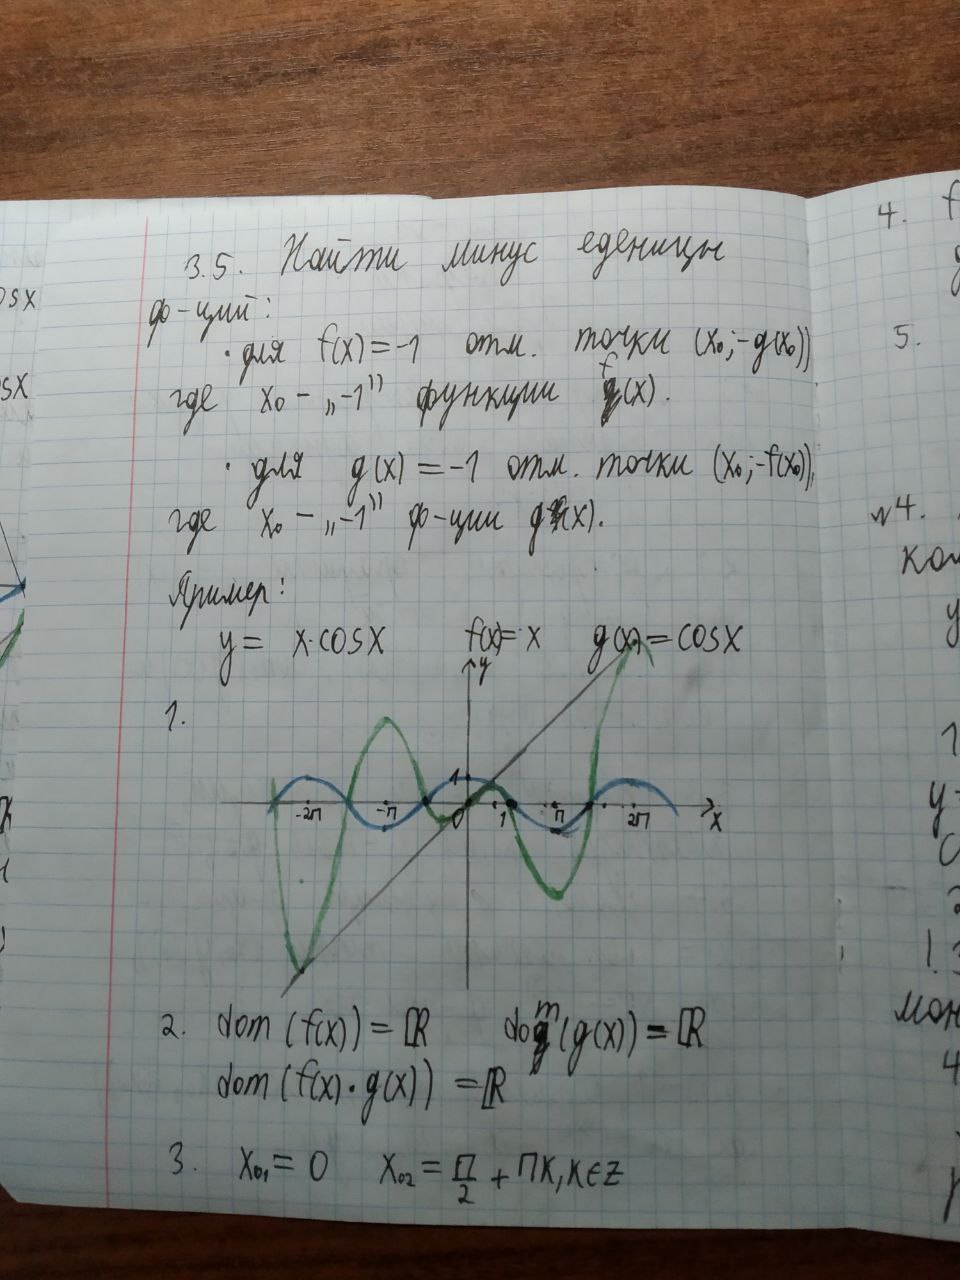 3.5. Найти минус еденицы
ф-ций:
· для f(x) = -1 отм. точки (x₀; -g(x₀))
где x₀ - „-1” функции f(x).
· для g(x) = -1 отм. точки (x₀; -f(x₀)),
где x₀ - „-1” ф-ции g(x).
Пример:
y = x·cosx f(x) = x g(x) = cosx
1.
y
1
-2π -π 0 1 π 2π x
2. dom (f(x)) = ℝ dom (g(x)) = ℝ
dom (f(x)·g(x)) = ℝ
3. x₀₁ = 0 x₀₂ = π/2 + πk, k∈z
osx
sx
4. f
5.
№4.
ком
y
1
y=
1.3
мон
4